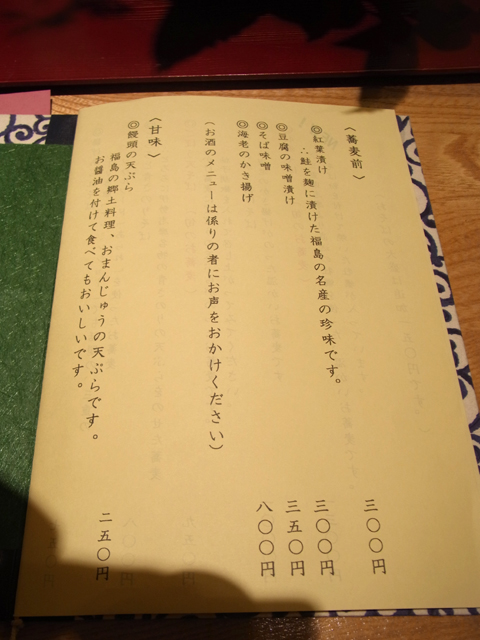 〈蕎麦前〉
◎紅葉漬け 三〇〇円
∴鮭を麹に漬けた福島の名産の珍味です。
◎豆腐の味噌漬け 三〇〇円
◎そば味噌 三五〇円
◎海老のかき揚げ 八〇〇円
(お酒のメニューは係りの者にお声をおかけください)
〈甘味〉
◎饅頭の天ぷら 二五〇円
福島の郷土料理、おまんじゅうの天ぷらです。
お醤油を付けて食べてもおいしいです。